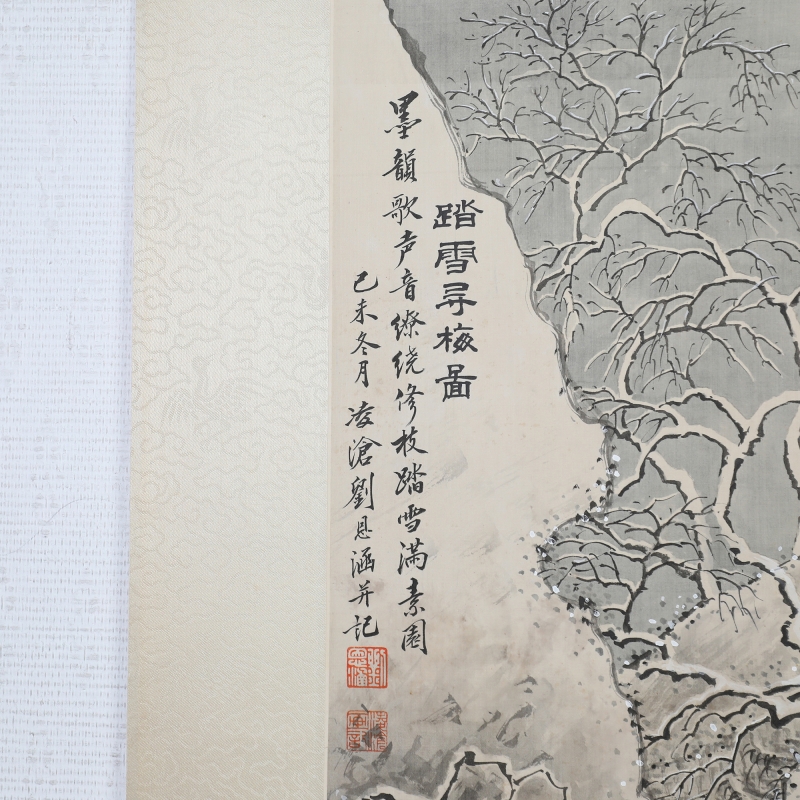 踏雪寻梅啚
墨韻歌声音缭绕修枝踏雪满素園
己未冬月凌滄劉恩涵并記